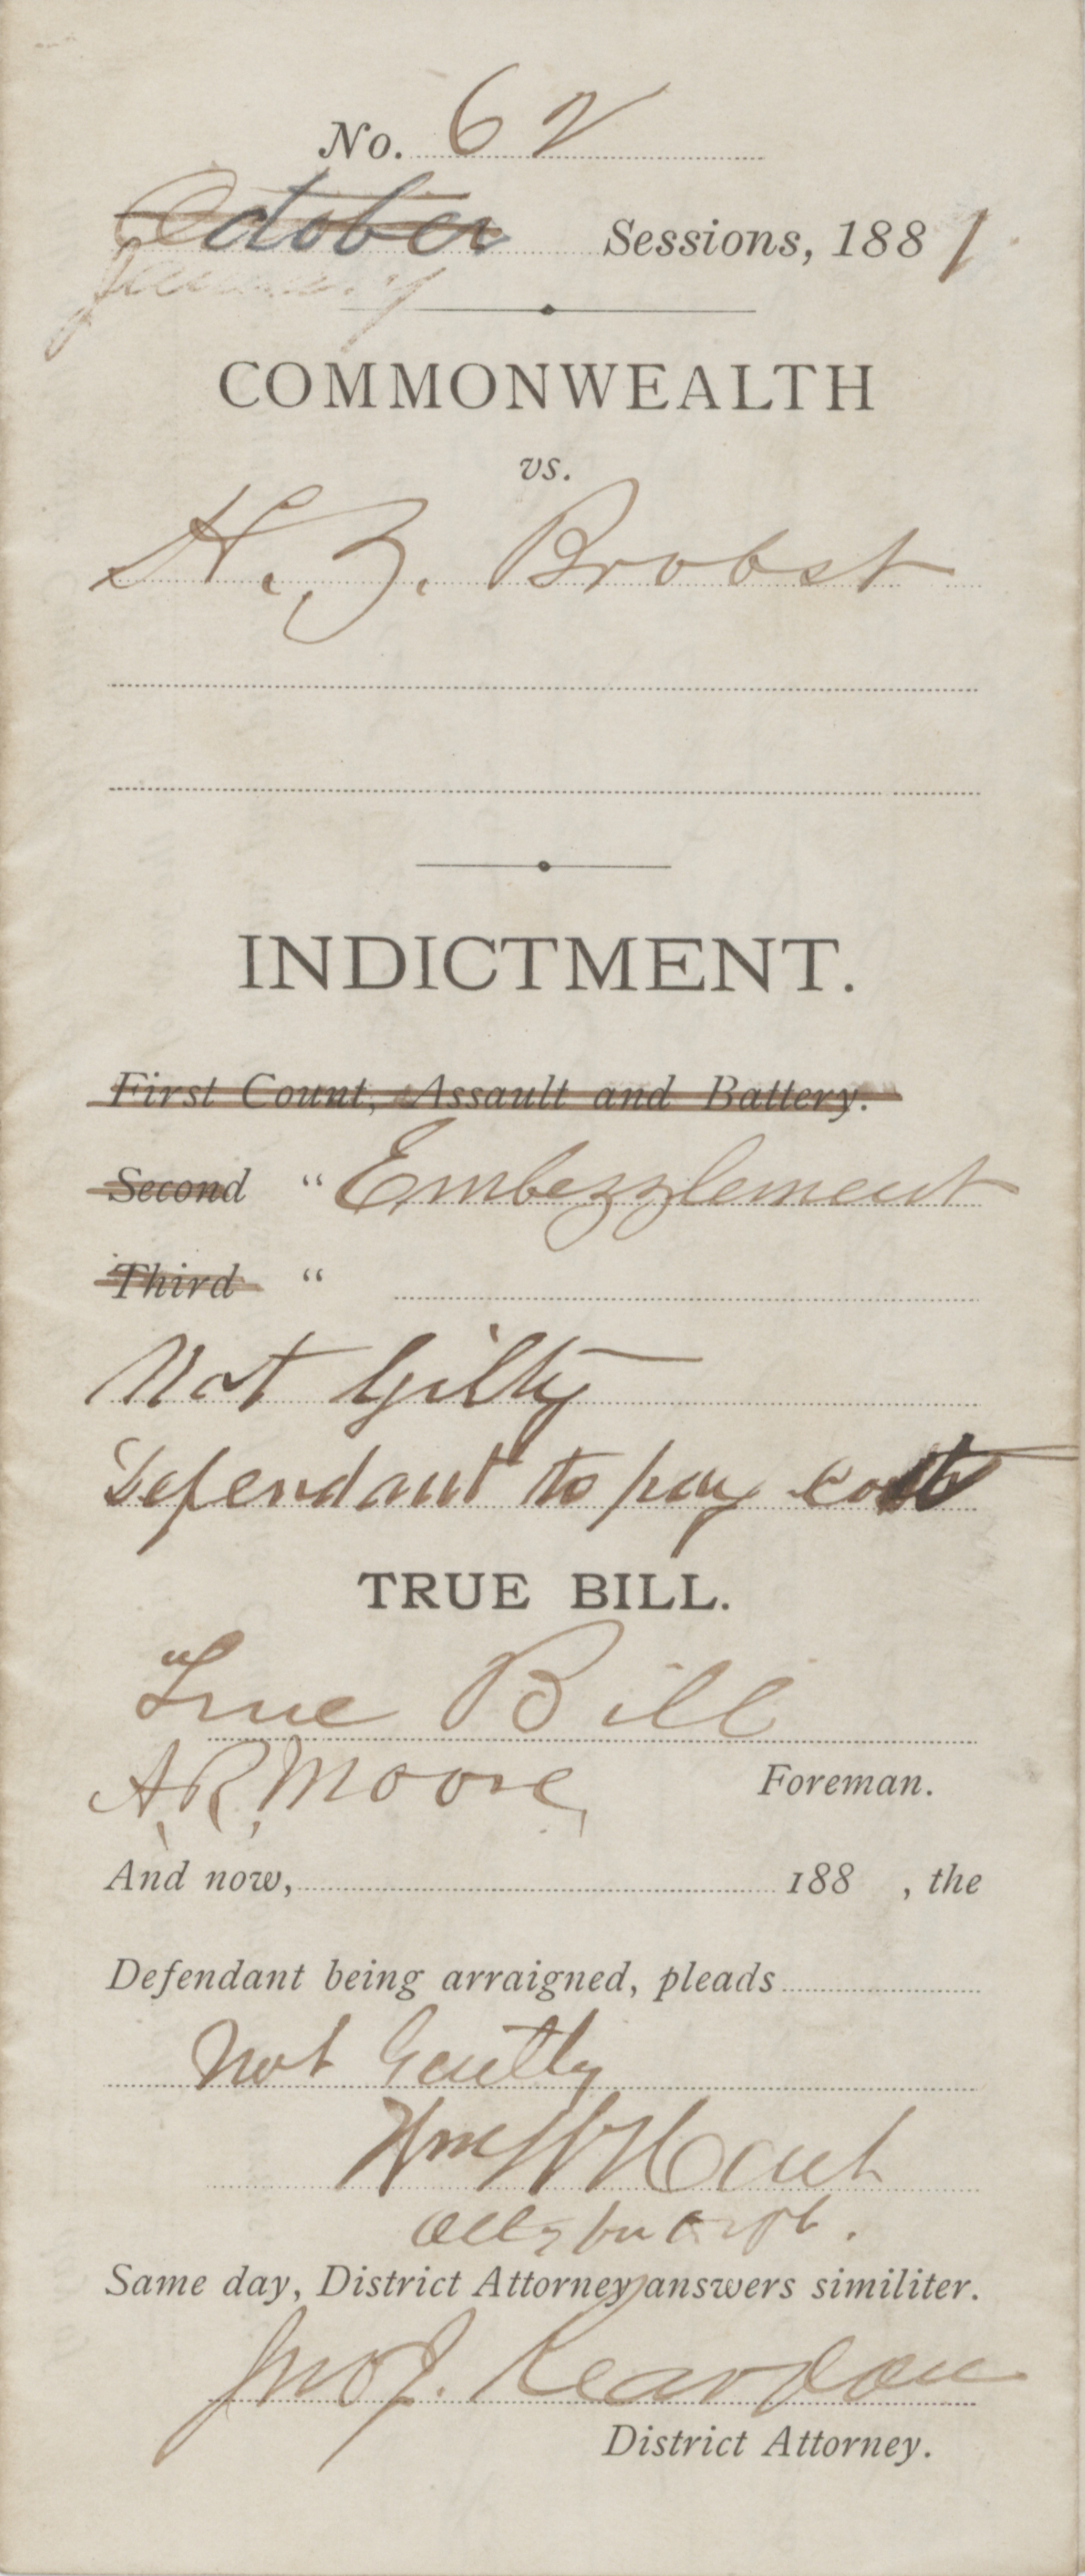 No. 62
October Sessions, 1881.
January
COMMONWEALTH
vs.
H. Z. Brobst
INDICTMENT.
First Count, Assault and Battery.
Second " Embezzlement
Third "
Not Gilty
Defendant to pay costs
TRUE BILL.
True Bill
A. R. Moore, Foreman.
And now, 188 , the
Defendant being arraigned, pleads
Not Guilty
Wm W Hart
Atty for
Same day, District Attorney answers similiter.
Jno J. Reardon
District Attorney.